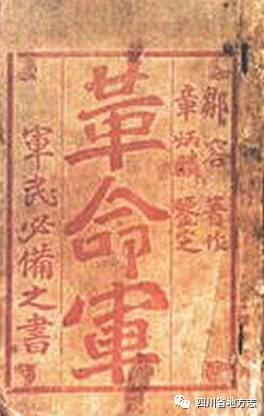 鄒容著作
章炳麟鑒定
革命軍
軍民必備之書
四川省地方志